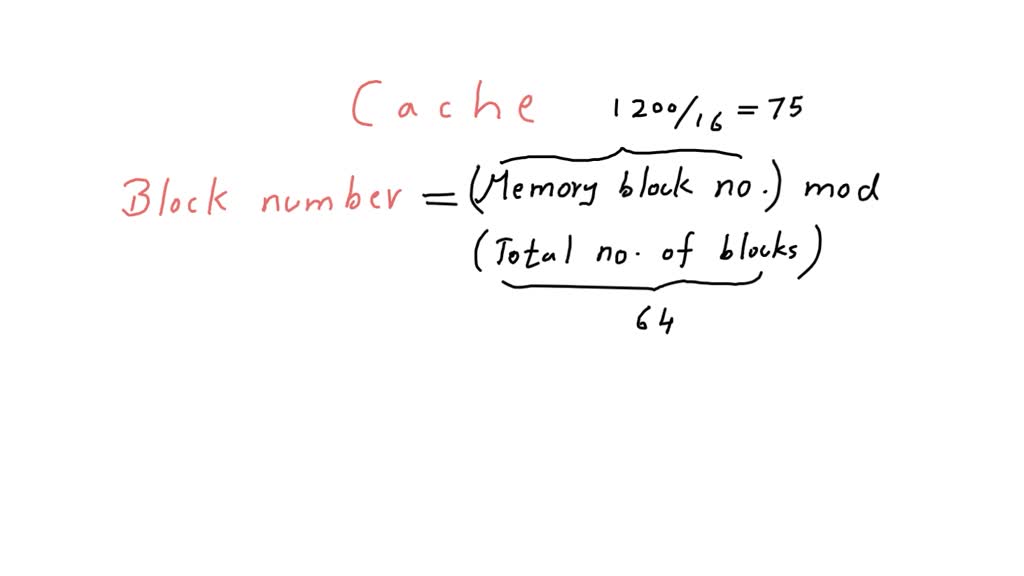 Cache 1200/16 = 75
Block number = (Memory block no.) mod
(Total no. of blocks)
64